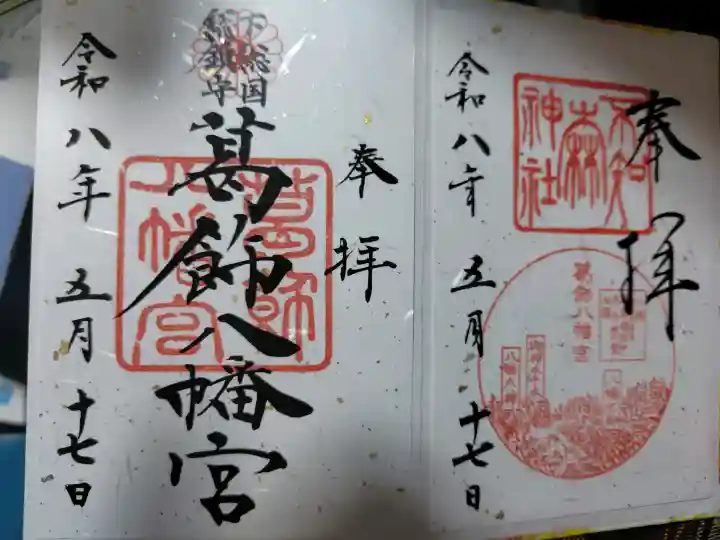 奉拝
不知
森
神社
葛飾八幡宮
八幡
令和八年 五月 十七日
奉拝
下総国
総鎮守
葛飾八幡宮
葛飾
八幡宮
令和八年 五月 十七日